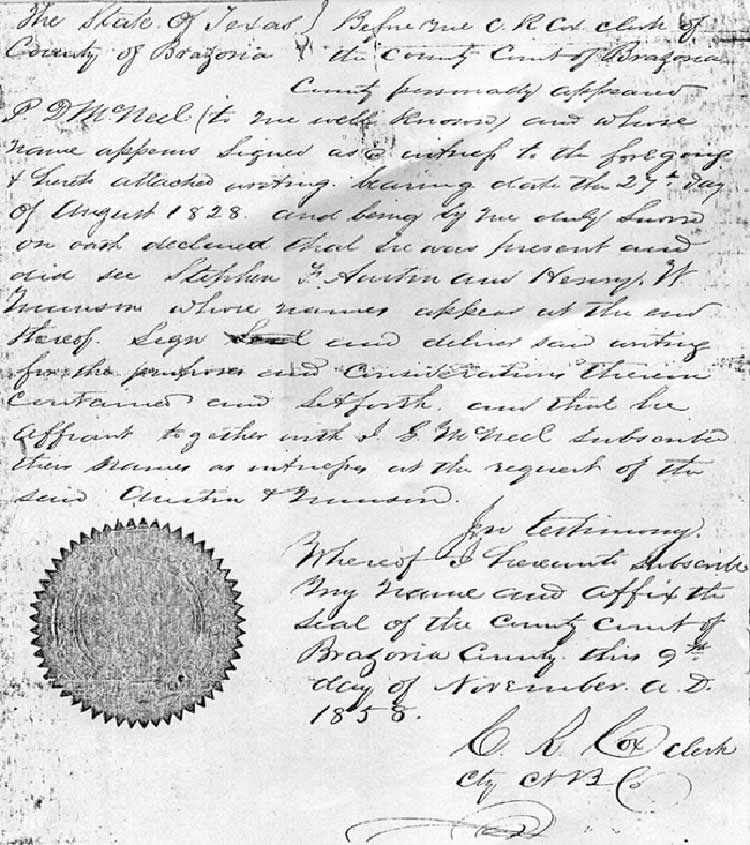 The State of Texas } Before me C. R. Cox clerk of
County of Brazoria } the County Court of Brazoria
County personally appeared
P D McNeel (to me well known) and whose
name appears signed as a witness to the foregoing
& hereto attached writing. bearing date the 27th day
of August 1828. and being by me duly sworn
on oath declared that he was present and
did see Stephen F. Austin and Henry W
Munson whose names appear at the end
thereof. Sign and deliver said writing
for the purposes and considerations therein
contained and setforth. and that he
affiant together with J. G. McNeel subscribed
their names as witnesses at the request of the
said Austin & Munson.
In testimony.
Whereof I hereunto subscribe
my name and affix the
seal of the County Court of
Brazoria County. this 9th
day of November. A. D.
1858.
C. R. Cox clerk
Cty Ct B Co